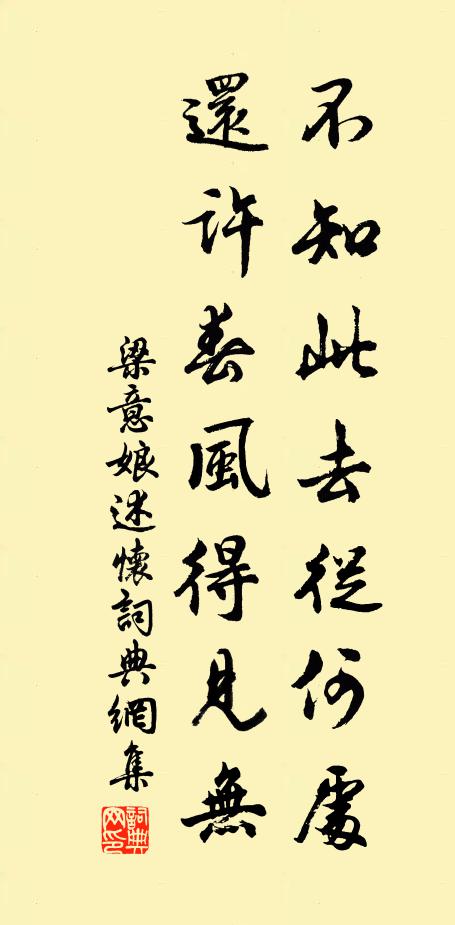 不知此去從何處
還許春風得見無
梁意娘述懷詞典網集
詞典網印